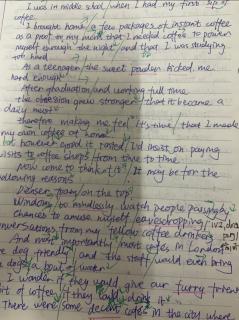 I was in middle shcol, when I had my first sip of
coffee.
I bought home a few packages of instant coffee
as a proof in my mind that I needed coffee to power
myself through the night, and that I was studying
too hard.
As a teenager, the sweet powder kicked me
hard enough
After graduation, and working full time
the obsession grew stronger that it became a
daily must.
therefore making me feel it's time, that I made
my own coffee at home
but however good it tasted, I'd insist on paying
visits to coffee shops from time to time
Now come to think of it, It may be for the
following reasons
Denser on the top
Windows to mindlessly watch people passing by
Chances to amuse myself eavesdropping
conversations from my fellow coffee drinkers
And most importantly, most cafes in London
are dog friendly and the staff would even bring
dogs a bowl of water
I wonder if they would give our furry friends
of coffee if they could
There were some decent cafes in the city where